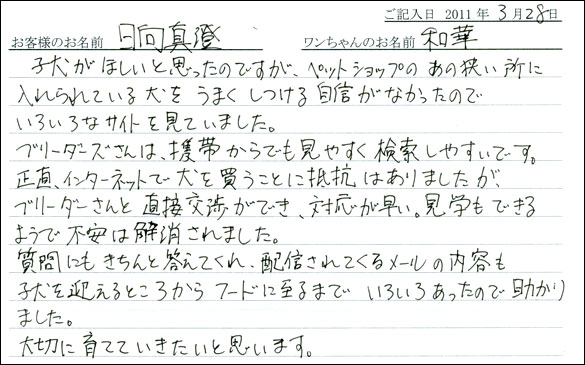 ご記入日 2011年3月28日
お客様のお名前 日向真澄 ワンちゃんのお名前 和華
子犬がほしいと思ったのですが、ペットショップのあの狭い所に
入れられている犬をうまくしつける自信がなかったので
いろいろなサイトを見ていました。
ブリーダーズさんは、携帯からでも見やすく検索しやすいです。
正直、インターネットで犬を買うことに抵抗はありましたが、
ブリーダーさんと直接交渉ができ、対応が早い。見学もできる
ようで不安は解消されました。
質問にもきちんと答えてくれ、配信されてくるメールの内容も
子犬を迎えるところからフードに至るまでいろいろあったので助かり
ました。
大切に育てていきたいと思います。